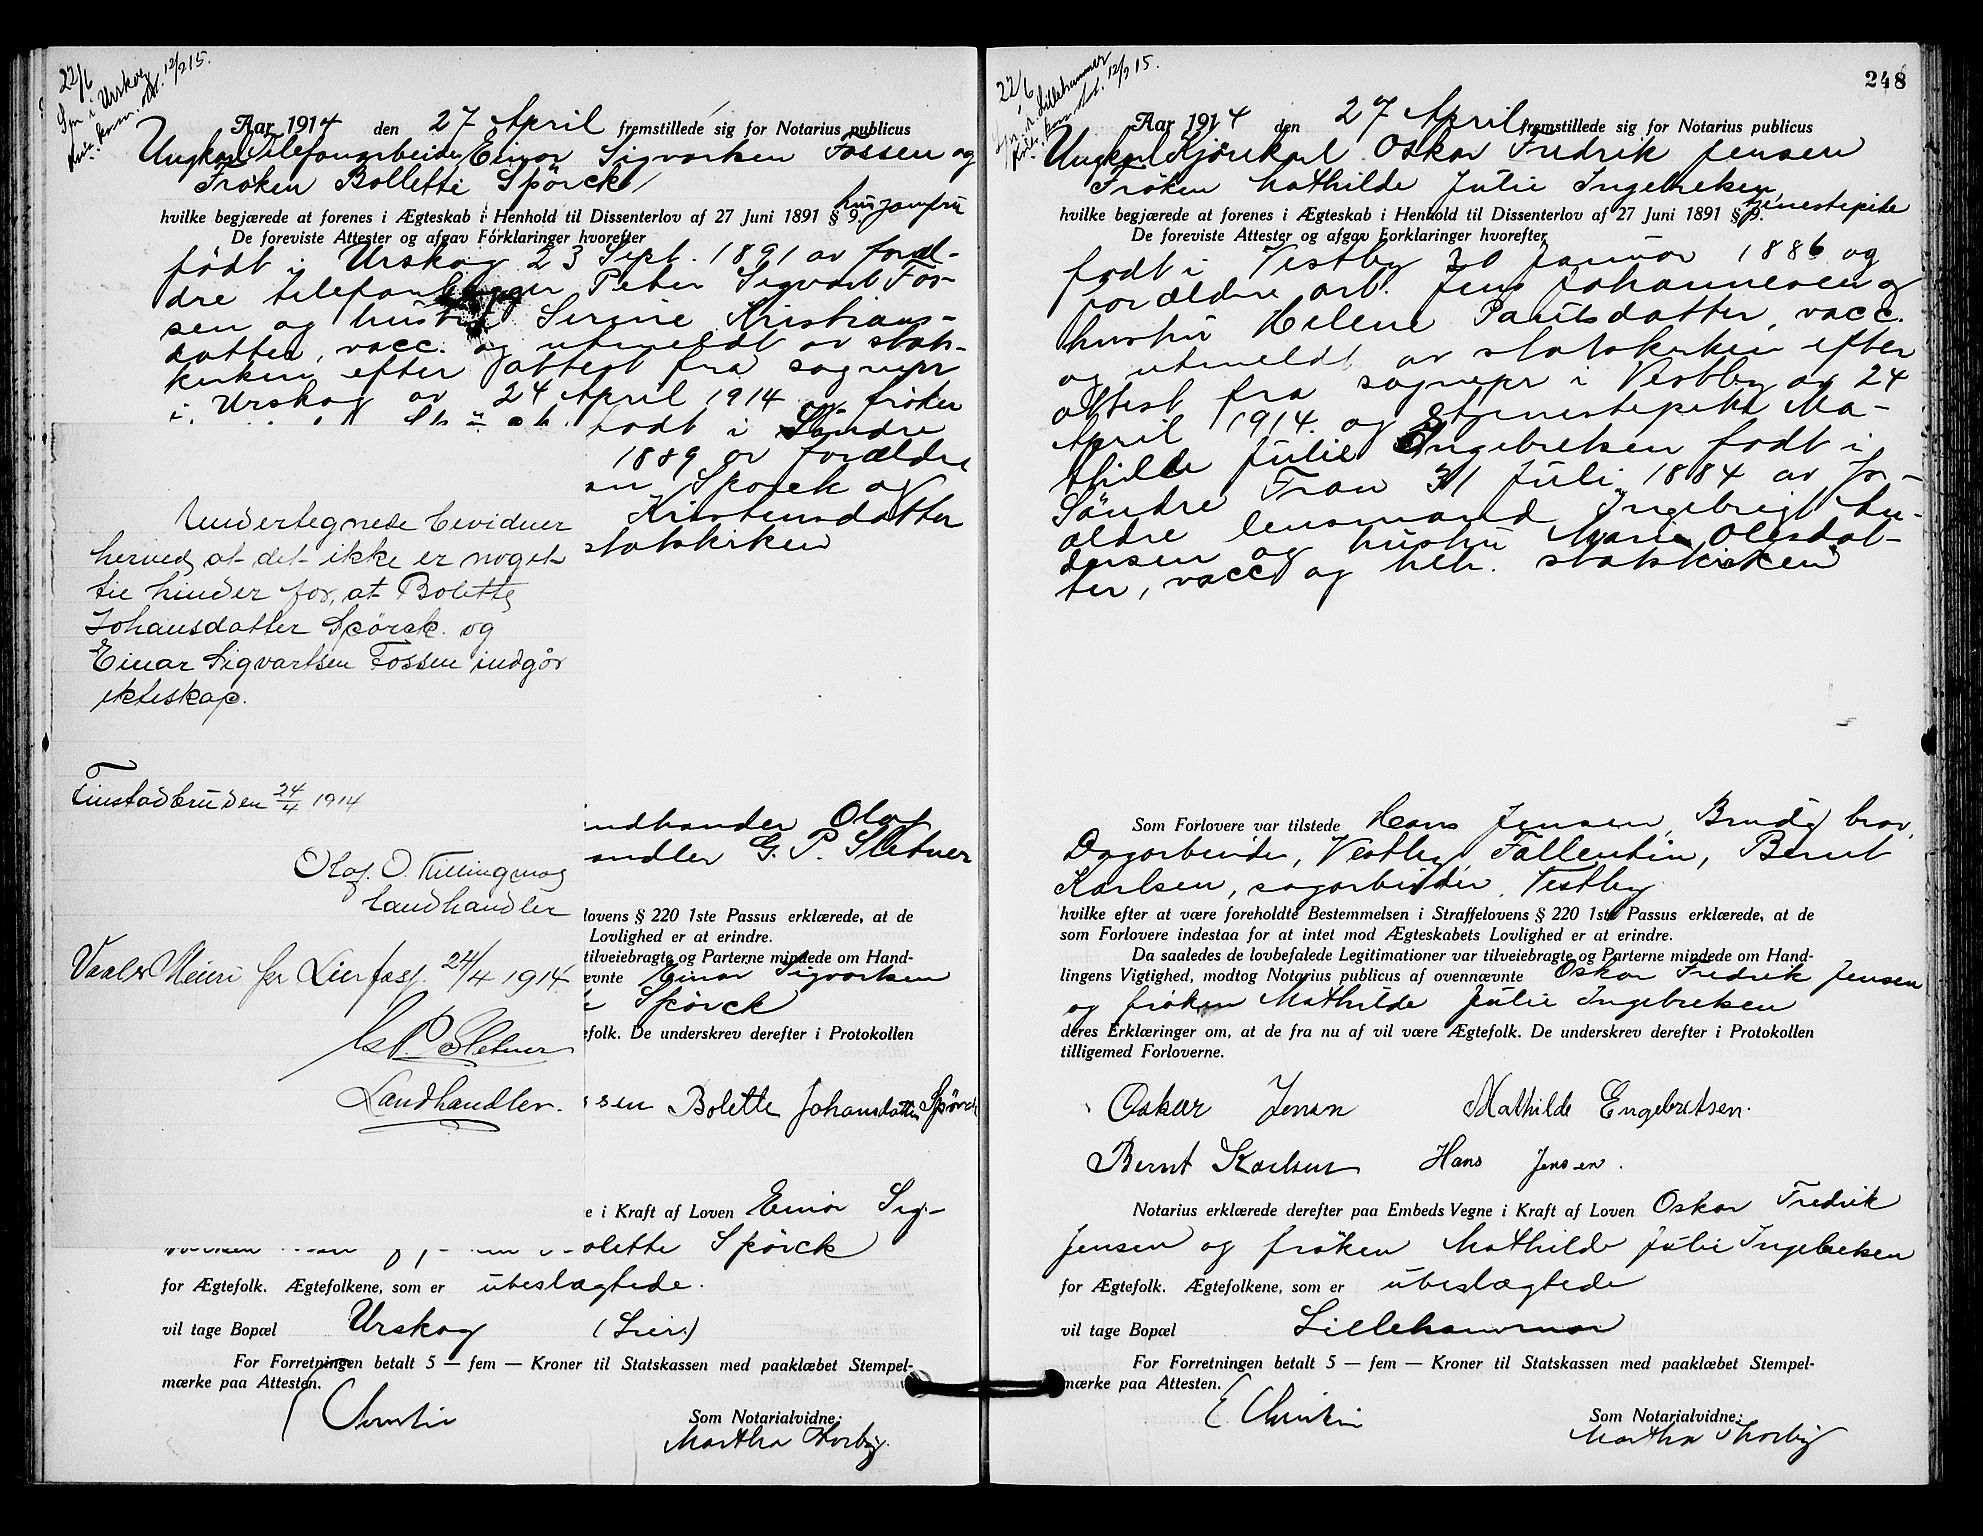 22/6
Spr i Urskog
12/2 15.
Aar 1914 den 27 April fremstillede sig for Notarius publicus
Ungkarl Telefonarbeider Einar Sigvartsen Fossen og
Frøken Bollette Spörck
husjomfru
hvilke begjærede at forenes i Ægteskab i Henhold til Dissenterlov af 27 Juni 1891 § 9.
De foreviste Attester og afgav Forklaringer hvorefter
födt i Urskog 23 Sept. 1891 av foræl-
dre telefonbygger Peter Sigvart Fos-
sen og hustru Serine Kristians-
datter, vacc. og utmeldt av stats-
kirken efter attest fra sognepr
i Urskog av 24 April 1914 og frøken
födt i Søndre
1889 av forældre
Spörck og
Kristensdatter
statskirken
Undertegnede bevidner
herved at det ikke er noget
til hinder for, at Bolette
Johansdatter Spörck og
Einar Sigvartsen Fossen indgår
ekteskap.
Finstadbru den 24/4 1914
Olaf O. Killingmo
Landhandler
Vaaler Meieri pr Lierfoss. 24/4 1914
G. P. Sletner
Landhandler.
andhandler Olaf
andler G. P. Sletner
lovens § 220 1ste Passus erklærede, at de
Lovlighed er at erindre.
tilveiebragte og Parterne mindede om Hand-
ævnte Einar Sigvartsen
Spörck
efolk. De underskrev derefter i Protokollen
ssen Bolette Johansdatter Spörck
e i Kraft af Loven Einar Sig-
olette Spörck
for Ægtefolk. Ægtefolkene, som er ubeslægtede.
vil tage Bopæl Urskog (Lier.)
For Forretningen betalt 5 — fem — Kroner til Statskassen med paaklæbet Stempel-
mærke paa Attesten.
Som Notarialvidne:
Martha Thorby.
248
22/6
Spr. i Lillehammer
12/2 15.
Aar 1914 den 27 April fremstillede sig for Notarius publicus
Ungkarl Kjörekarl Oskar Fredrik Jensen
Frøken Mathilde Julie Ingebretsen
tjenestepike
hvilke begjærede at forenes i Ægteskab i Henhold til Dissenterlov af 27 Juni 1891 § 9.
De foreviste Attester og afgav Forklaringer hvorefter
födt i Vestby 30 Januar 1886 og
forældre arb. Jens Johannesen og
hustru Helene Paulsdatter, vacc.
og utmeldt av statskirken efter
attest fra sognepr i Vestby av 24
April 1914. og tjenestepike Ma-
thilde Julie Ingebretsen födt i
Söndre Fron 31 Juli 1884 av for-
ældre lensmand Ingebrigt An-
dersen og hustru Marie Olesdat-
ter, vacc og tilh. statskirken
Som Forlovere var tilstede Hans Jensen, Brudg bror,
Dagarbeider, Vestby Follentin, Bernt
Karlsen, sagarbeider, Vestby
hvilke efter at være foreholdte Bestemmelsen i Straffelovens § 220 1ste Passus erklærede, at de
som Forlovere indestaa for at intet mod Ægteskabets Lovlighed er at erindre.
Da saaledes de lovbefalede Legitimationer var tilveiebragte og Parterne mindede om Hand-
lingens Vigtighed, modtog Notarius publicus af ovennævnte Oskar Fredrik Jensen
og frøken Mathilde Julie Ingebretsen
deres Erklæringer om, at de fra nu af vil være Ægtefolk. De underskrev derefter i Protokollen
tilligemed Forloverne.
Oskar Jensen Mathilde Engebretsen.
Bernt Karlsen Hans Jensen.
Notarius erklærede derefter paa Embeds Vegne i Kraft af Loven Oskar Fredrik
Jensen og frøken Mathilde Julie Ingebretsen
for Ægtefolk. Ægtefolkene, som er ubeslægtede
vil tage Bopæl Lillehammer
For Forretningen betalt 5 — fem — Kroner til Statskassen med paaklæbet Stempel-
mærke paa Attesten.
Som Notarialvidne:
Martha Thorby